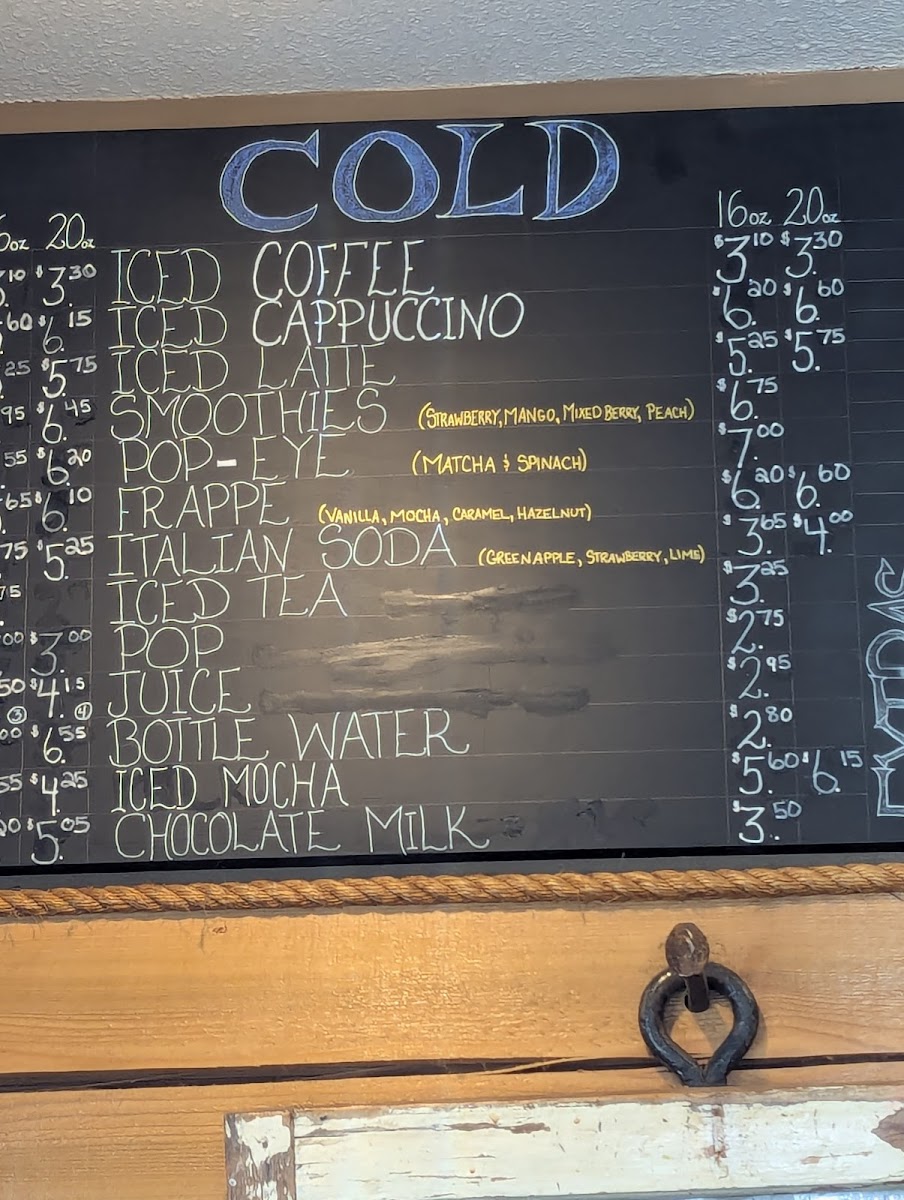 COLD
20oz 16oz 20oz
$3.30 ICED COFFEE $3.10 $3.30
$6.15 ICED CAPPUCCINO $6.20 $6.60
$5.75 ICED LATTE $5.25 $5.75
$6.45 SMOOTHIES (STRAWBERRY, MANGO, MIXED BERRY, PEACH) $6.75
$6.20 POP-EYE (MATCHA & SPINACH) $7.00
$6.10 FRAPPE (VANILLA, MOCHA, CARAMEL, HAZELNUT) $6.20 $6.60
$5.25 ITALIAN SODA (GREEN APPLE, STRAWBERRY, LIME) $3.65 $4.00
ICED TEA $3.25
$3.00 POP $2.75
$4.15 JUICE $2.95
③ ④
$6.55 BOTTLE WATER $2.80
$4.25 ICED MOCHA $5.60 $6.15
$5.05 CHOCOLATE MILK $3.50
EXTRAS